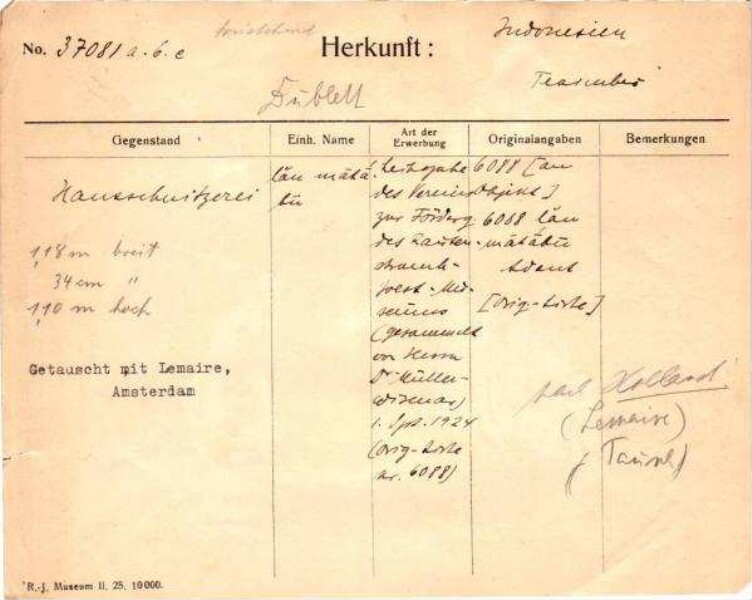 No. 37081 a. b. c
Herkunft:
Indonesien
Dublett
Gegenstand
Einh. Name
Art der Erwerbung
Originalangaben
Bemerkungen
Hausschnitzerei
1,18 m breit
34 cm "
1,10 m hoch
Getauscht mit Lemaire,
Amsterdam
lân mätä
bû
Leihgabe
des Vereins
zur Förderg
des Rauten-
strauch-
Joest-Mu-
seums
(gesammelt
von Herrn
Dr Müller-
Wismar)
1. Spt. 1924
(Orig-Liste
nr. 6088)
6088 [am
Objekt]
6068 lân
mätäbû
[Orig-Liste]
nach Holland
(Lemaire)
(Tausch)
R.-J. Museum II. 25. 10000.